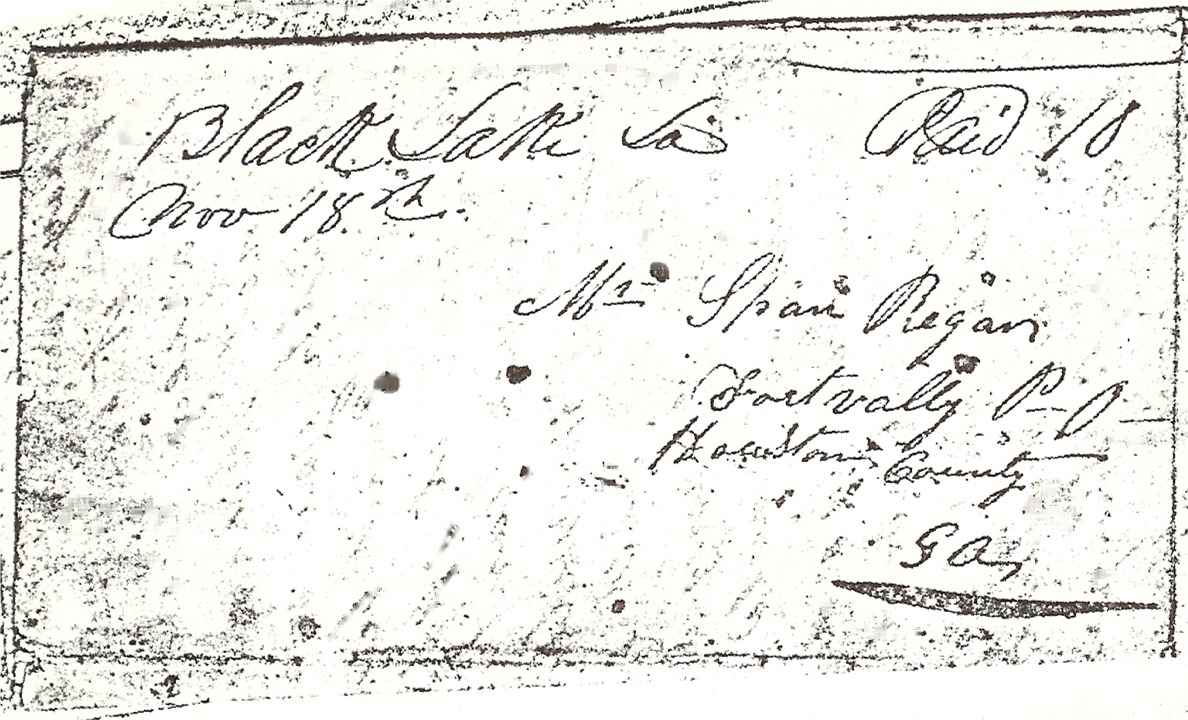 Black Lake La Paid 10
Nov 18th
Mr Span Regan
Fort vally P. O
Houston County
GA,